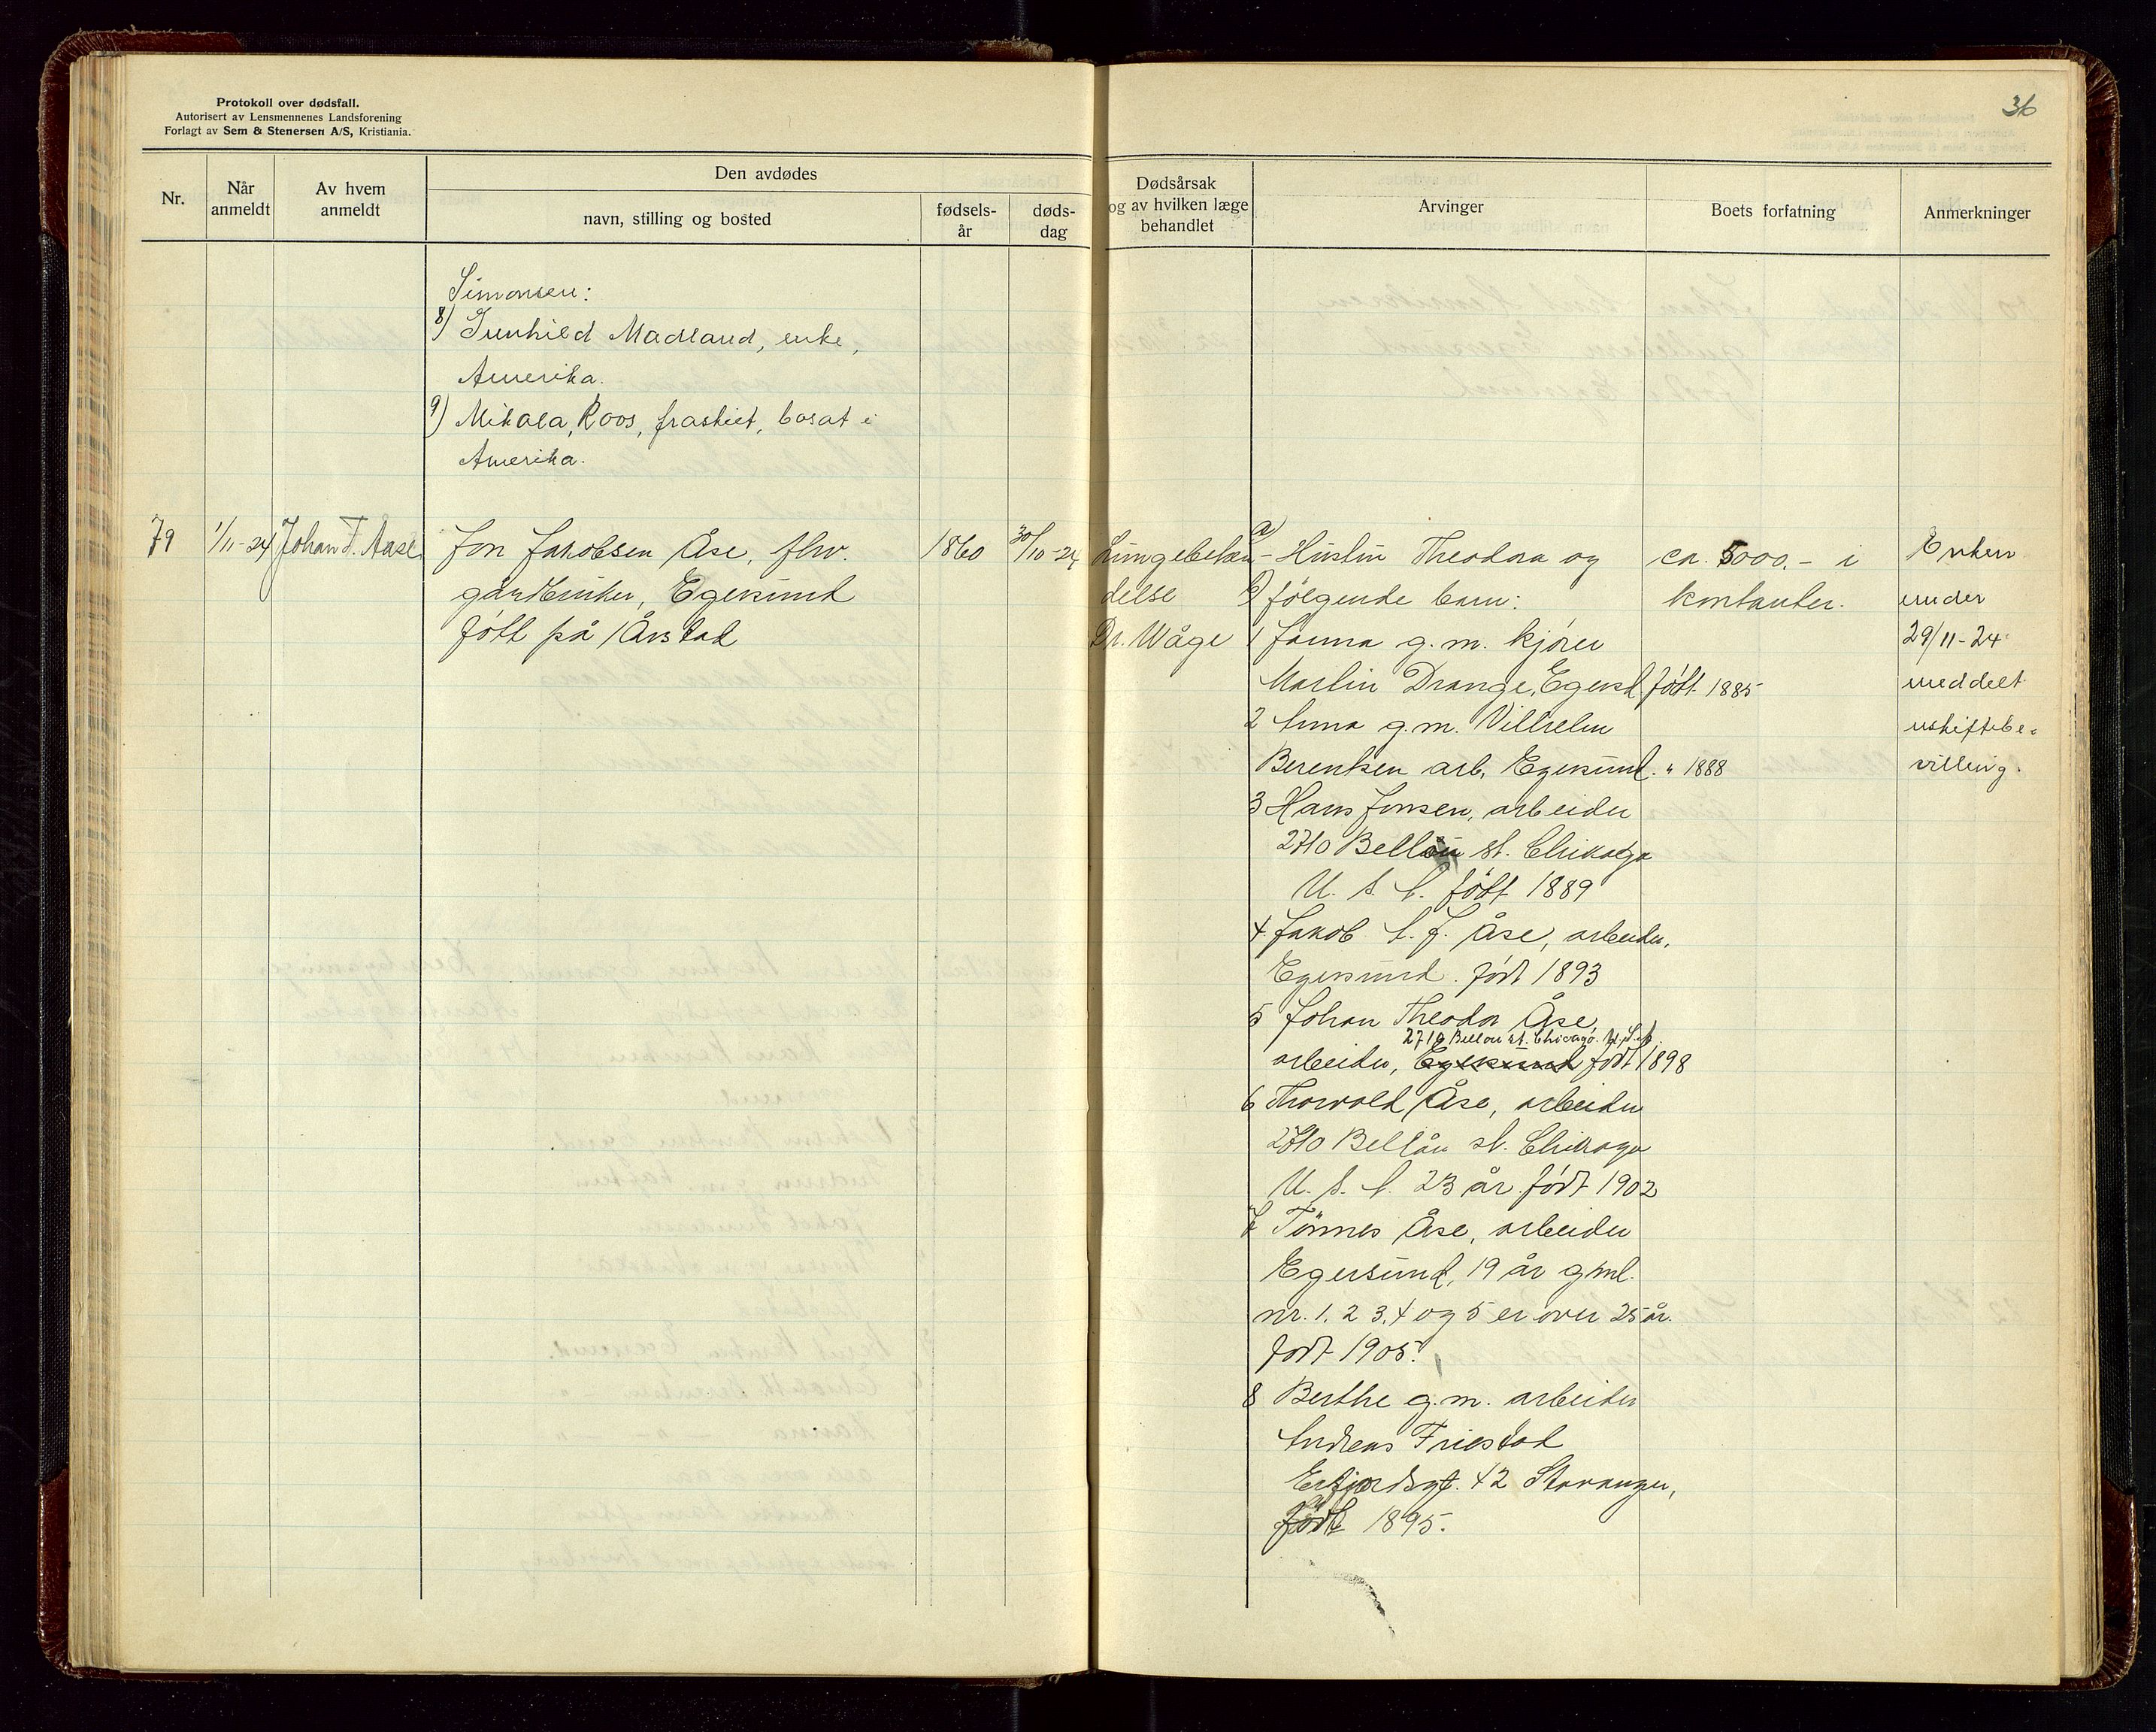 Protokoll over dødsfall.
Autorisert av Lensmennenes Landsforening
Forlagt av Sem & Stenersen A/S, Kristiania.
36
Nr.
Når anmeldt
Av hvem anmeldt
Den avdødes
navn, stilling og bosted
fødsels-år
døds-dag
Dødsårsak
og av hvilken læge
behandlet
Arvinger
Boets forfatning
Anmerkninger
Simonsen:
8) Gunhild Madland, enke,
Amerika.
9) Mikala, Roos, fraskiet, bosat i
Amerika.
79
1/11-24
Johan T. Aase
Jon Jakobsen Åse, fhv.
gårdbruker, Egersund
født på Årstad
1860
30/10-24
Lungebeten-
delse
Dr. Wåge
a) Hustru Theodora og
b) følgende barn:
1 Janna g.m. kjører
Martin Drange, Egersd født 1885
2 Anna g.m. Vilhelm
Berentsen arb. Egersund. " 1888
3 Hans Jonsen, arbeider
2710 Bellåu st. Chikago
U. S. A. født 1889
4 Jakob A. J. Åse, arbeider,
Egersund. født 1893
5 Johan Theodor Åse,
2710 Bellou st. Chicago. U.S.A.
arbeider, Egersund født 1898
6 Thorvald Åse, arbeider
2710 Bellåu st. Chikago
U. S. A. 23 år født 1902
7 Tønnes Åse, arbeider
Egersund, 19 år gml.
nr. 1, 2 3, 4 og 5 er over 25 år.
født 1905.
8 Berthe g.m. arbeider
Andreas Friestad
Erfjordsgt. 42 Stavanger,
født 1895.
ca. 5000.- i
kontanter.
Enken
under
29/11-24
meddelt
uskiftebe-
villing.